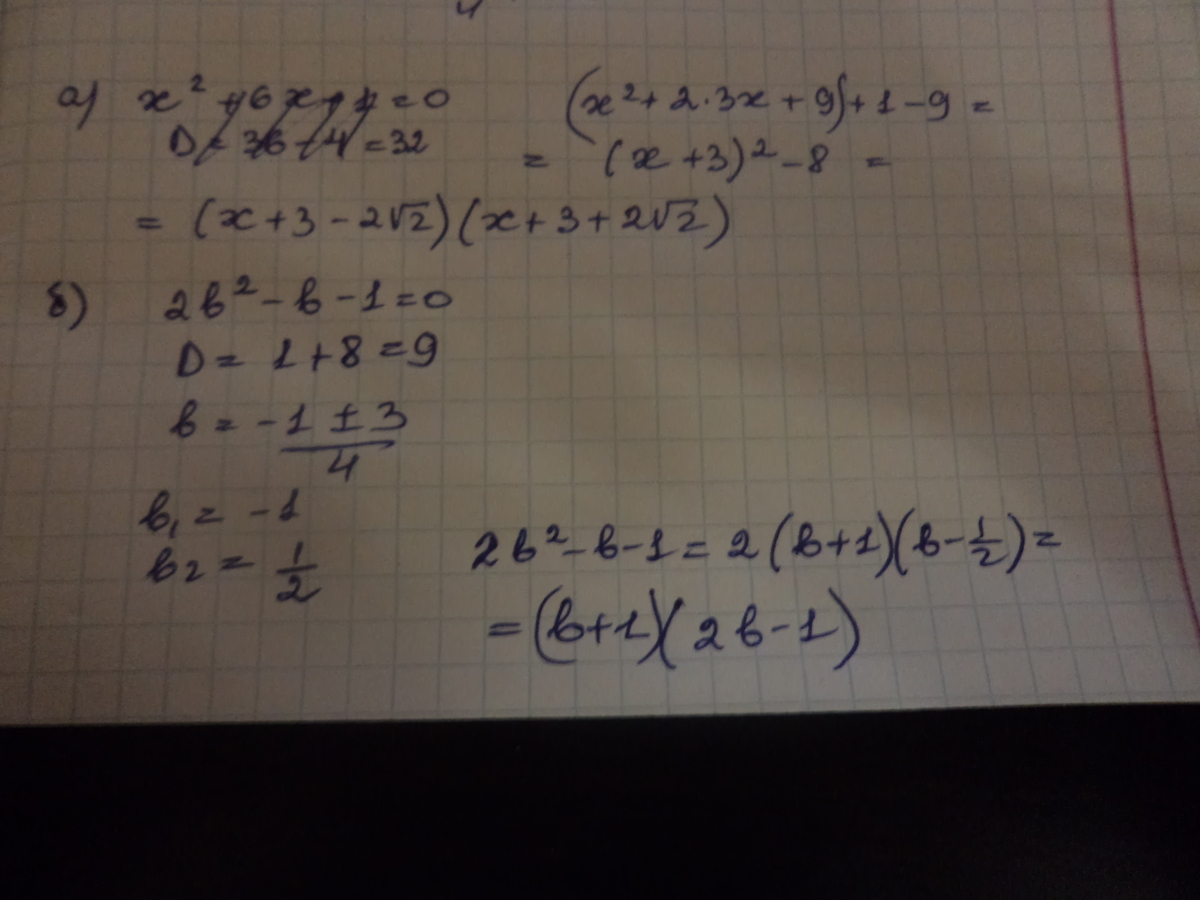 а) x² + 6x + 1 = 0
D = 36 - 4 = 32
(x² + 2·3x + 9) + 1 - 9 =
= (x + 3)² - 8 =
= (x + 3 - 2√2)(x + 3 + 2√2)
б) 2b² - b - 1 = 0
D = 1 + 8 = 9
b = -1 ± 3
4
b₁ = -1
b₂ = 1/2
2b² - b - 1 = 2(b+1)(b - 1/2) =
= (b+1)(2b - 1)